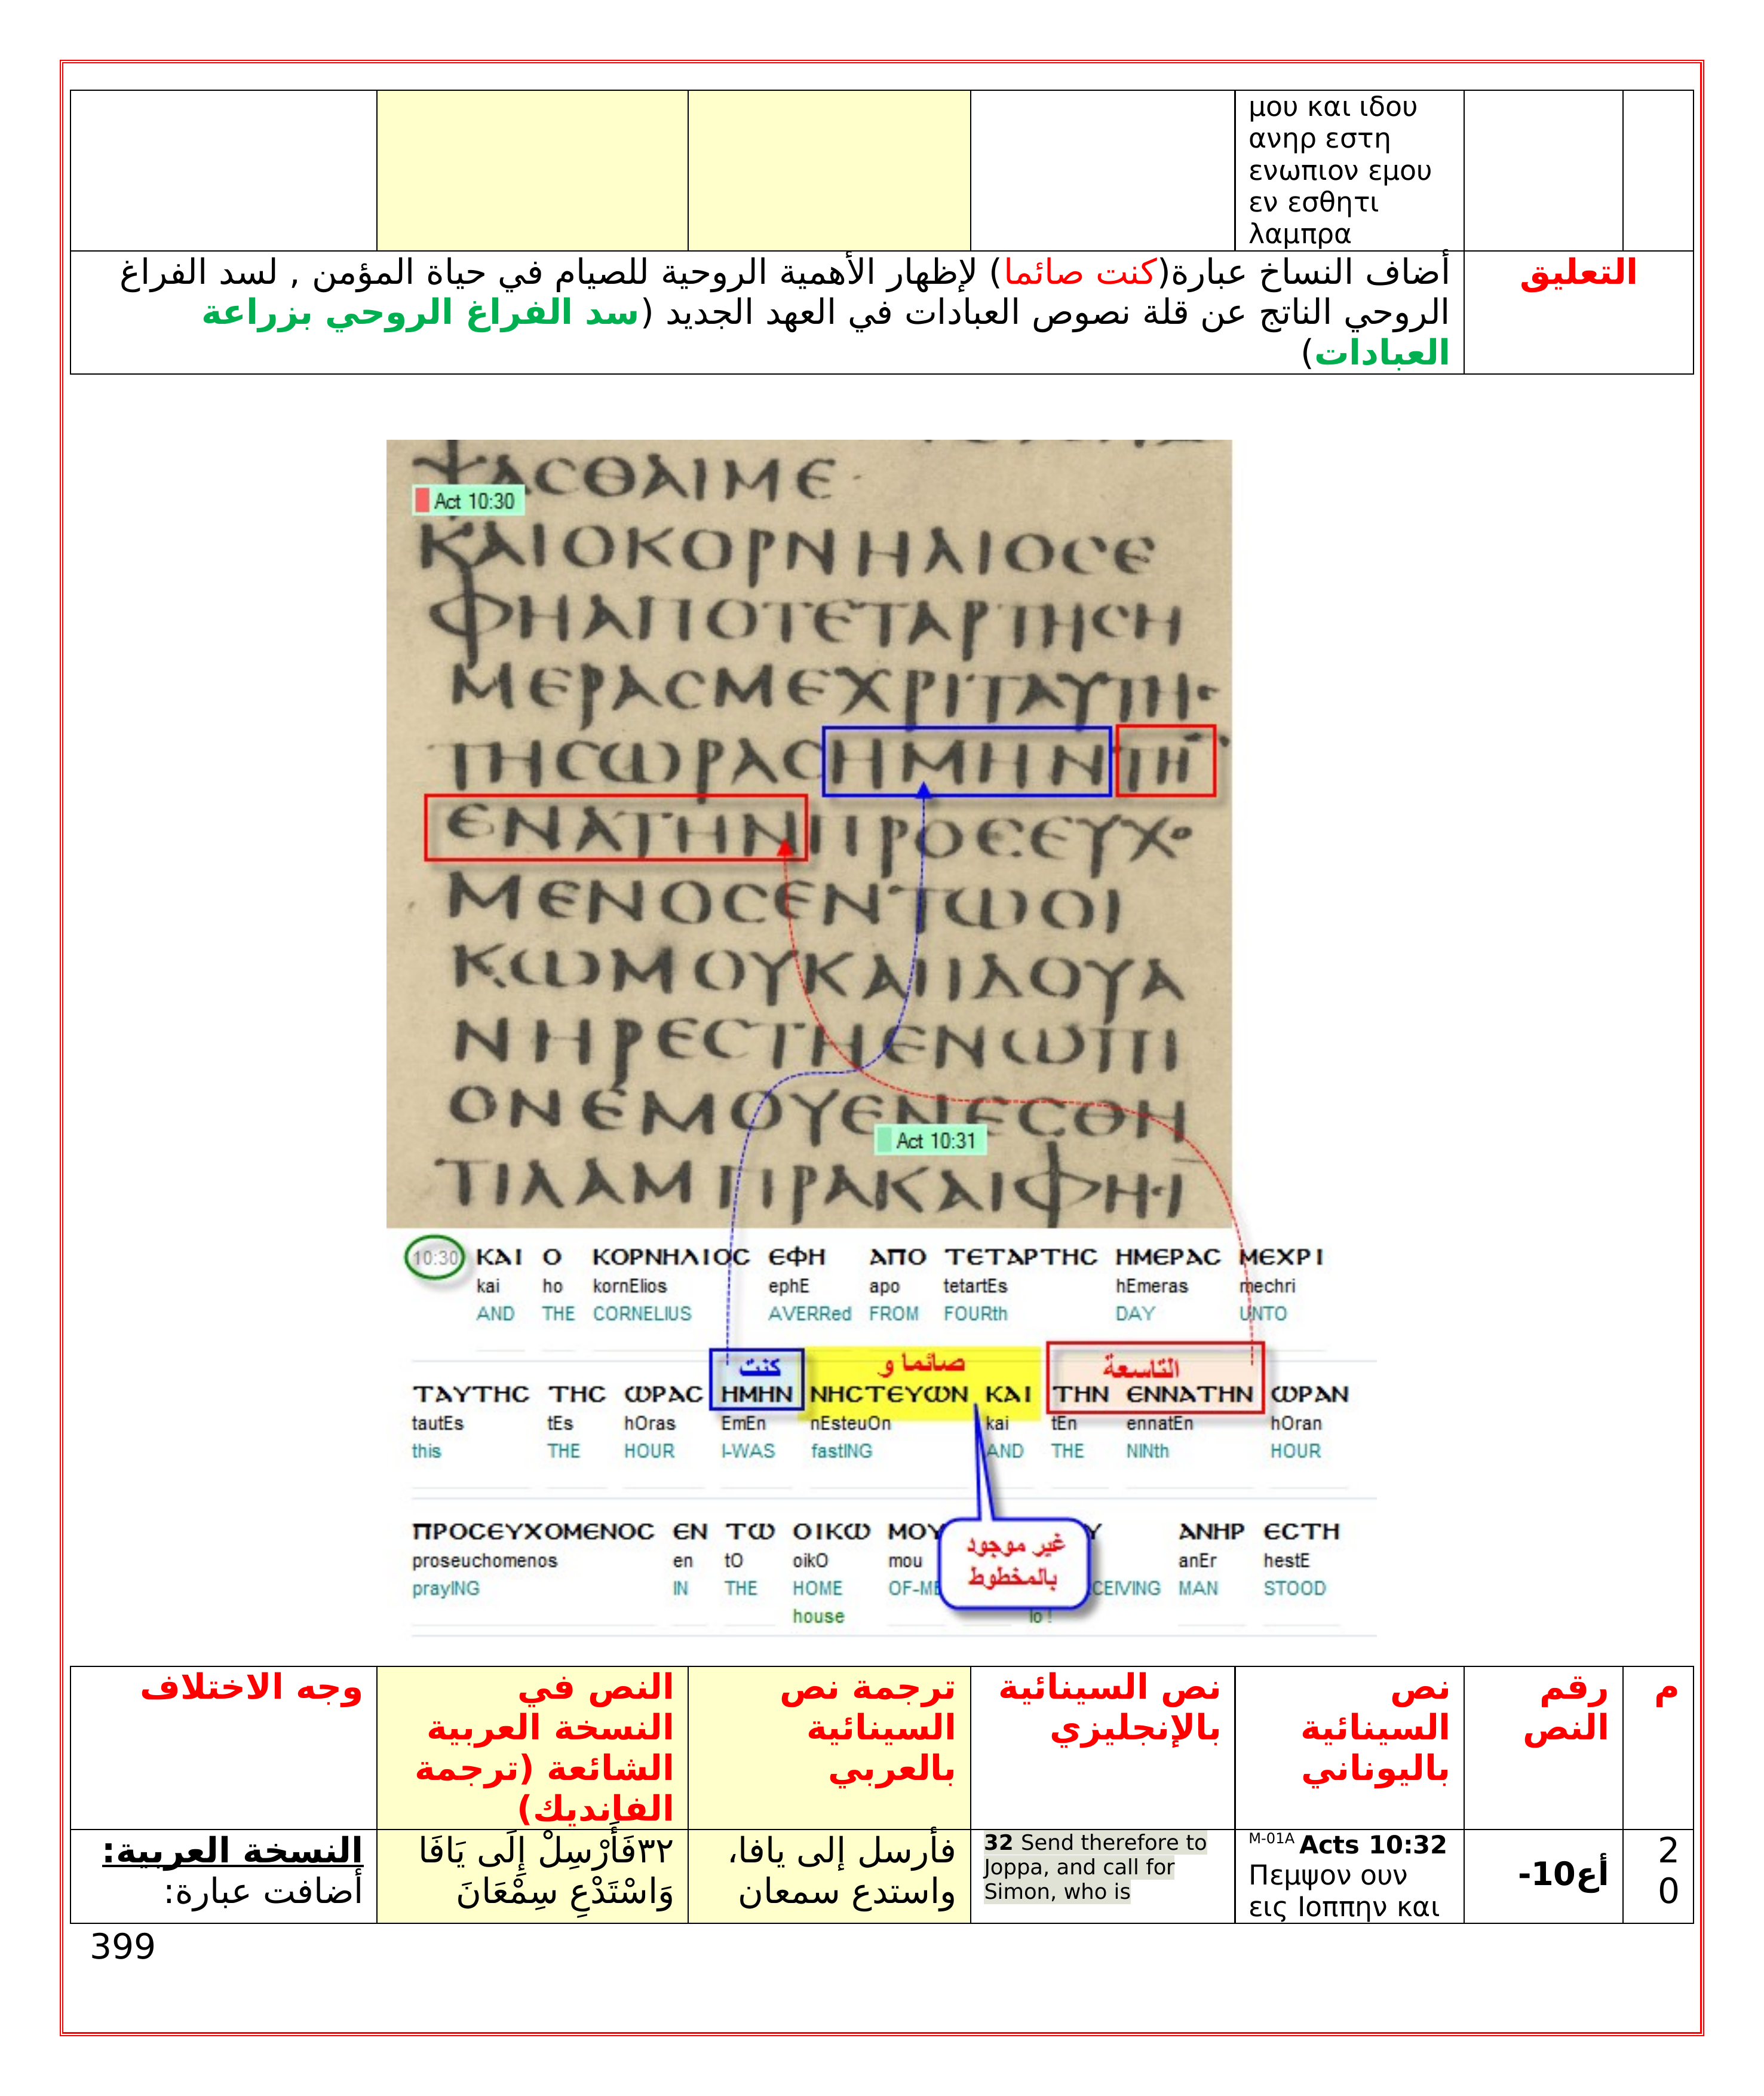 μου και ιδου
ανηρ εστη
ενωπιον εμου
εν εσθητι
λαμπρα
التعليق
أضاف النساخ عبارة(كنت صائما) لإظهار الأهمية الروحية للصيام في حياة المؤمن , لسد الفراغ
الروحي الناتج عن قلة نصوص العبادات في العهد الجديد (سد الفراغ الروحي بزراعة
العبادات)
ΨΑСΘΑΙΜΕ
Act 10:30
ΚΑΙΟΚΟΡΝΗΛΙΟСΕ
ΦΗΑΠΟΤΕΤΑΡΤΗСΗ
ΜΕΡΑСΜΕΧΡΙΤΑΥΤΗС
ΤΗСωΡΑСΗΜΗΝΤΗ
ΕΝΑΤΗΝΠΡΟСΕΥΧΟ
ΜΕΝΟСΕΝΤωΟΙ
ΚωΜΟΥΚΑΙΙΔΟΥΑ
ΝΗΡΕСΤΗΕΝωΠΙ
ΟΝΕΜΟΥΕΝΕСΘΗ
Act 10:31
ΤΙΛΑΜΠΡΑΚΑΙΦΗСΙ
10:30 ΚΑΙ Ο ΚΟΡΝΗΛΙΟС ΕΦΗ ΑΠΟ ΤΕΤΑΡΤΗС ΗΜΕΡΑС ΜΕΧΡΙ
kai ho kornElios ephE apo tetartEs hEmeras mechri
AND THE CORNELIUS AVERRed FROM FOURth DAY UNTO
كنت صائما و التاسعة
ΤΑΥΤΗС ΤΗС ωΡΑС ΗΜΗΝ ΝΗСΤΕΥωΝ ΚΑΙ ΤΗΝ ΕΝΝΑΤΗΝ ωΡΑΝ
tautEs tEs hOras EmEn nEsteuOn kai tEn ennatEn hOran
this THE HOUR I-WAS fastING AND THE NINth HOUR
ΠΡΟСΕΥΧΟΜΕΝΟС ΕΝ Τω ΟΙΚω ΜΟΥ ΑΝΗΡ ΕСΤΗ
proseuchomenos en tO oikO mou anEr hestE
prayING IN THE HOME OF-ME CEIVING MAN STOOD
house lo !
غير موجود
بالمخطوط
م
رقم
النص
نص
السينائية
باليوناني
نص السينائية
بالإنجليزي
ترجمة نص
السينائية
بالعربي
النص في
النسخة العربية
الشائعة (ترجمة
الفانديك)
وجه الاختلاف
2
0
أع10-
M-01A Acts 10:32
Πεμψον ουν
εις Ιοππην και
32 Send therefore to
Joppa, and call for
Simon, who is
فأرسل إلى يافا،
واستدع سمعان
٣٢فَأَرْسِلْ إِلَى يَافَا
وَاسْتَدْعِ سِمْعَانَ
النسخة العربية:
أضافت عبارة:
399